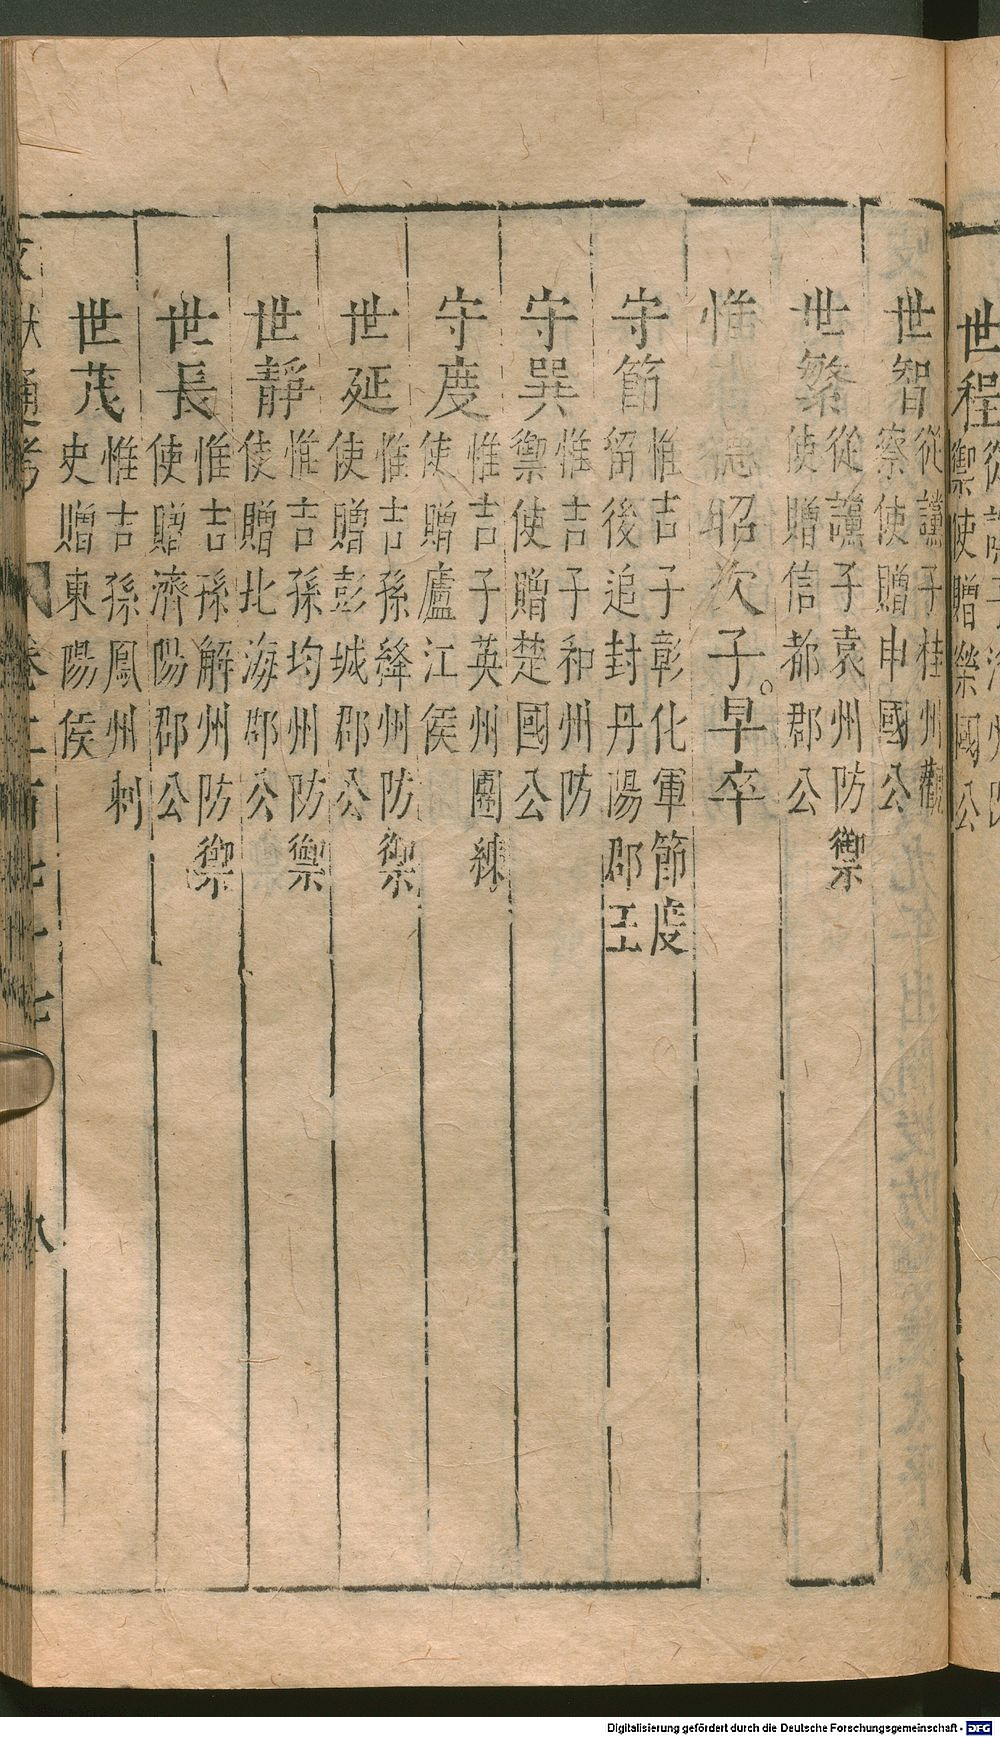 世程
禦使贈榮國公
世智 從讜子桂州觀
察使贈申國公
世繁 從讜子袁州防禦
使贈信都郡公
惟 德昭次子早卒
守節 惟吉子彰化軍節度
留後追封丹陽郡王
守巽 惟吉子和州防
禦使贈楚國公
守度 惟吉子英州團練
使贈廬江侯
世延 惟吉孫絳州防禦
使贈彭城郡公
世靜 惟吉孫均州防禦
使贈北海郡公
世長 惟吉孫解州防禦
使贈濟陽郡公
世茂 惟吉孫鳳州刺
史贈東陽侯
通考 卷二百七十七 八
Digitalisierung gefördert durch die Deutsche Forschungsgemeinschaft - DFG